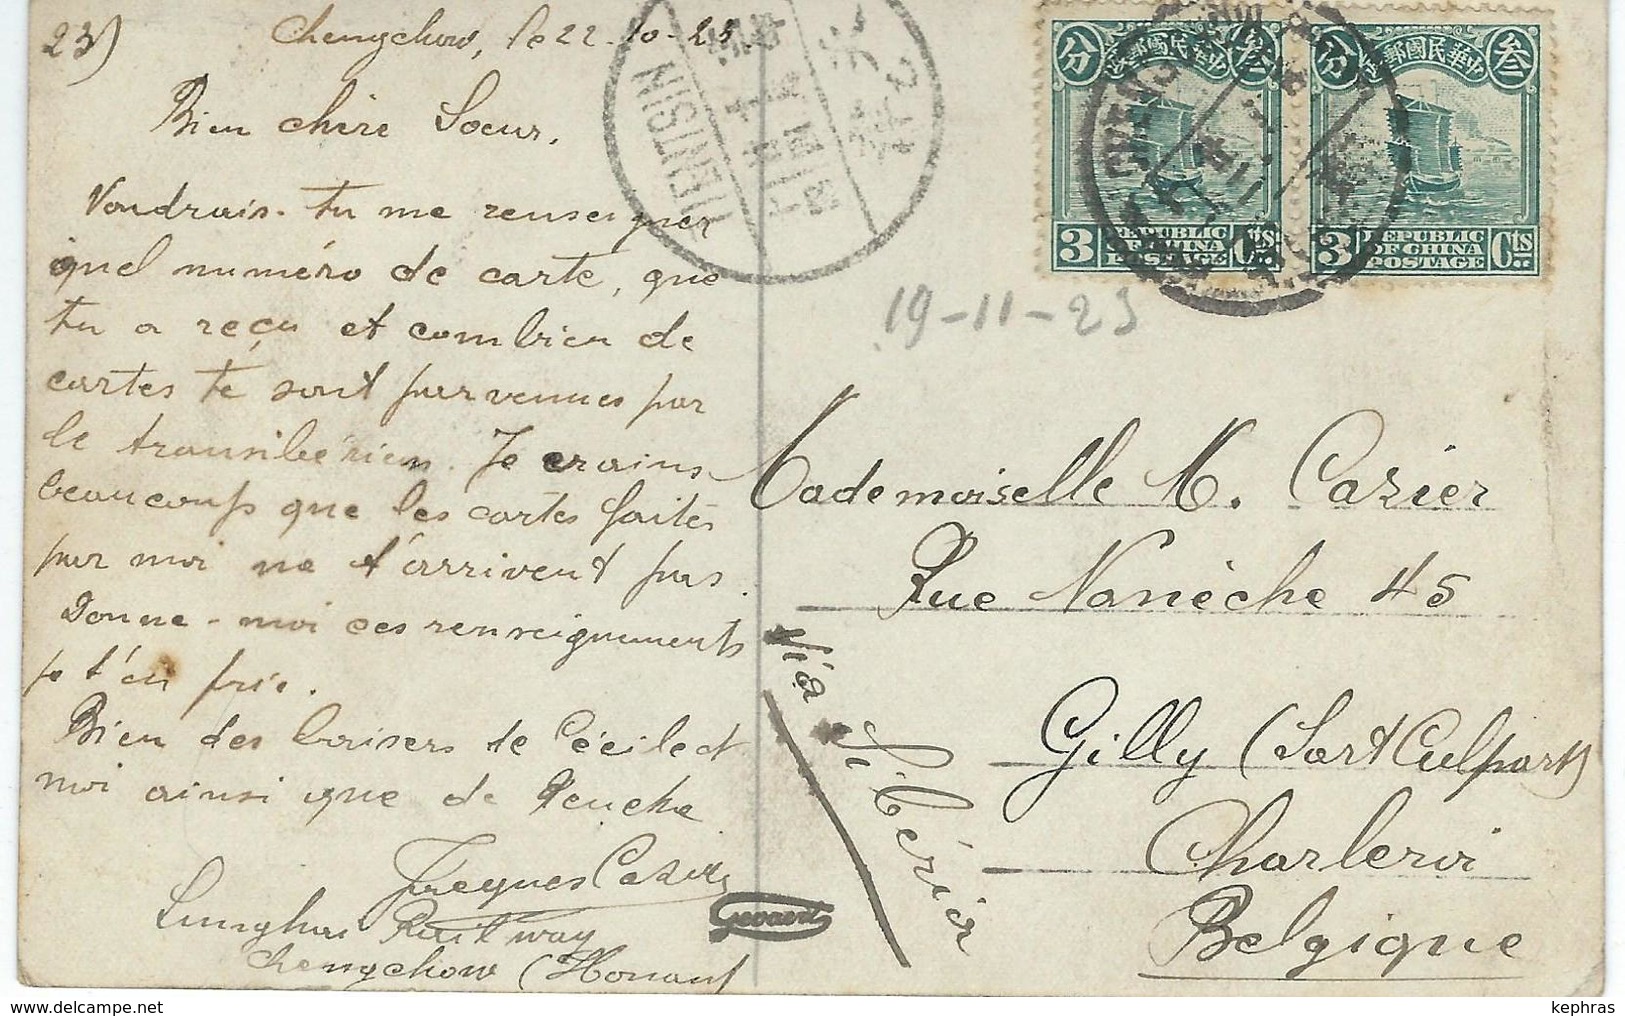 23) Chengchow, le 22-10-25
Bien chère Soeur,
Voudrais-tu me renseigner
quel numéro de carte, que
tu a reçu et combien de
cartes te sont parvenues par
le transibérien. Je crains
beaucoup que les cartes faites
par moi ne t'arrivent pas.
Donne-moi ces renseignements
je t'en prie.
Bien des baisers de Cécile et
moi ainsi que de
Cazier
Lunghai Railway
Chengchow (Honan)
TIENTSIN
天津
中華民國郵政
叁
分
3
REPUBLIC
OF CHINA
POSTAGE
Cts
中華民國郵政
叁
分
3
REPUBLIC
OF CHINA
POSTAGE
Cts
19-11-25
Mademoiselle M. Cazier
Rue Nanèche 45
Gilly (Sart Culpart)
Charleroi
Belgique
Via Sibéria
Gevaert
kephras